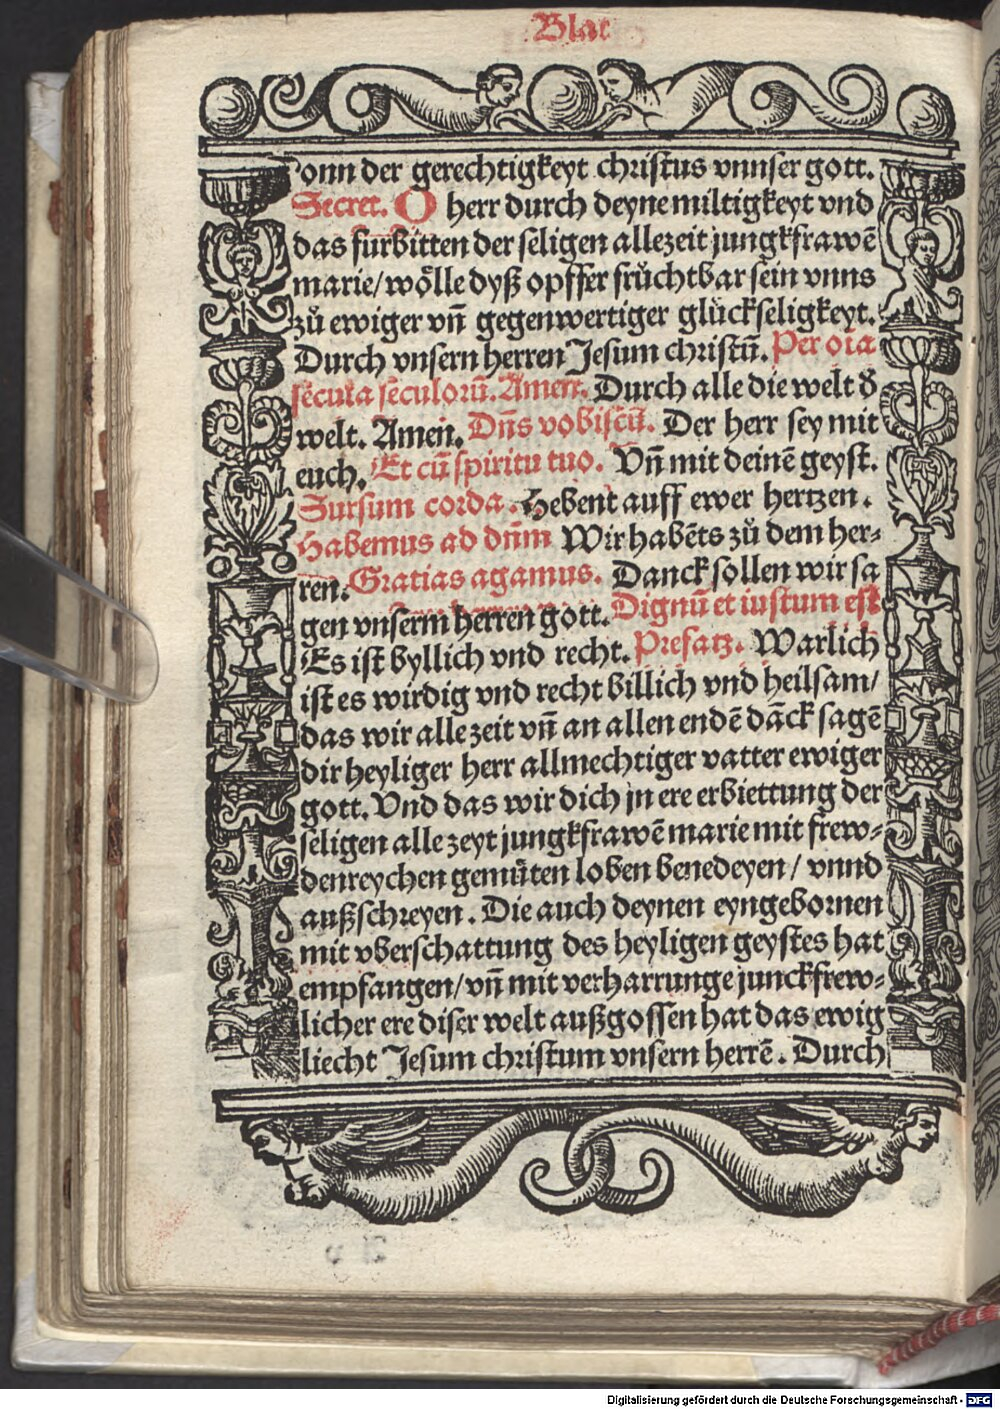 Blat
onn der gerechtigkeyt christus vnnser gott.
Secret. O herr durch deyne miltigkeyt vnd
das furbitten der seligen allezeit jungkfrawē
marie/ wölle dyß opffer frůchtbar sein vnns
zů ewiger vñ gegenwertiger glückseligkeyt.
Durch vnsern herren Jesum christū. Per oīa
secula seculorū. Amen. Durch alle die welt d̕
welt. Amen. Dñs vobiscū. Der herr sey mit
euch. Et cū spiritu tuo. Vñ mit deinē geyst.
Sursum corda. Hebent auff ewer hertzen.
Habemus ad dñm Wir habēts zů dem her⸗
ren. Gratias agamus. Danck sollen wir sa
gen vnserm herren gott. Dignū et iustum est
Es ist byllich vnd recht. Prefatz. Warlich
ist es wirdig vnd recht billich vnd heilsam/
das wir alle zeit vñ an allen endē dāck sagē
dir heyliger herr allmechtiger vatter ewiger
gott. Vnd das wir dich jn ere erbiettung der
seligen alle zeyt jungkfrawē marie mit frew⸗
denreychen gemůten loben benedeyen/ vnnd
außschreyen. Die auch deynen eyngebornen
mit vberschattung des heyligen geystes hat
empfangen/ vñ mit verharrunge junckfrew⸗
licher ere diser welt außgossen hat das ewig
liecht Jesum christum vnsern herrē. Durch
Digitalisierung gefördert durch die Deutsche Forschungsgemeinschaft - DFG